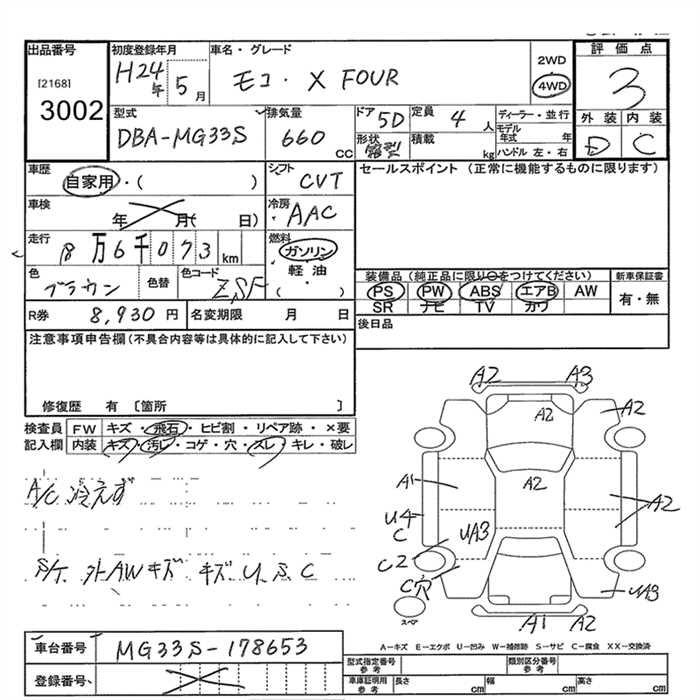 出品番号
[2168]
3002
初度登録年月
H24年 5月
車名・グレード
モコ・X FOUR
2WD
4WD
評価点
3
型式
DBA-MG33S
排気量
660 CC
ドア
5D
形状
箱型
定員
4 人
積載
kg
ディーラー・並行
モデル年式 年
ハンドル 左・右
外装 内装
E C
車歴
自家用・( )
シフト
CVT
セールスポイント (正常に機能するものに限ります)
車検
年 月( 日)
冷房
AAC
走行
8万6千073 km
燃料
ガソリン
軽・油
( )
色
ブラウン
色替
色コード
装備品(純正品に限り○をつけてください)
新車保証書
PS PW ABS エアB AW
SR ナビ TV カワ
有・無
R券 8,930円
名変期限 月 日
後日品
注意事項申告欄(不具合内容等は具体的に記入して下さい)
修復歴 有 〔箇所 〕
検査員記入欄
FW キズ・飛石・ヒビ割・リペア跡・×要
内装 キズ・汚レ・コゲ・穴・スレ・キレ・破レ
A/C 冷えず
S/T 外AWキズ キズ U、S、C
A2 A3
A2
A2
A1
A2
A2
U4
C
UA3
C2
C穴
UA3
スペア
A1 A2
A-キズ E-エクボ U-凹み W-補修跡 S-サビ C-腐食 XX-交換済
車台番号
MG33S-178653
登録番号
型式指定番号
参考
類別区分番号
参考
車庫証明用
参考
長さ cm 幅 cm 高さ cm